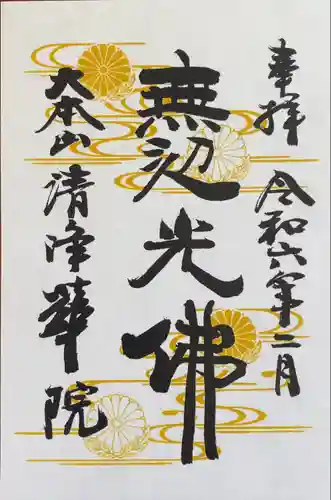 奉拝
令和六年二月
無辺光佛
大本山
清浄華院